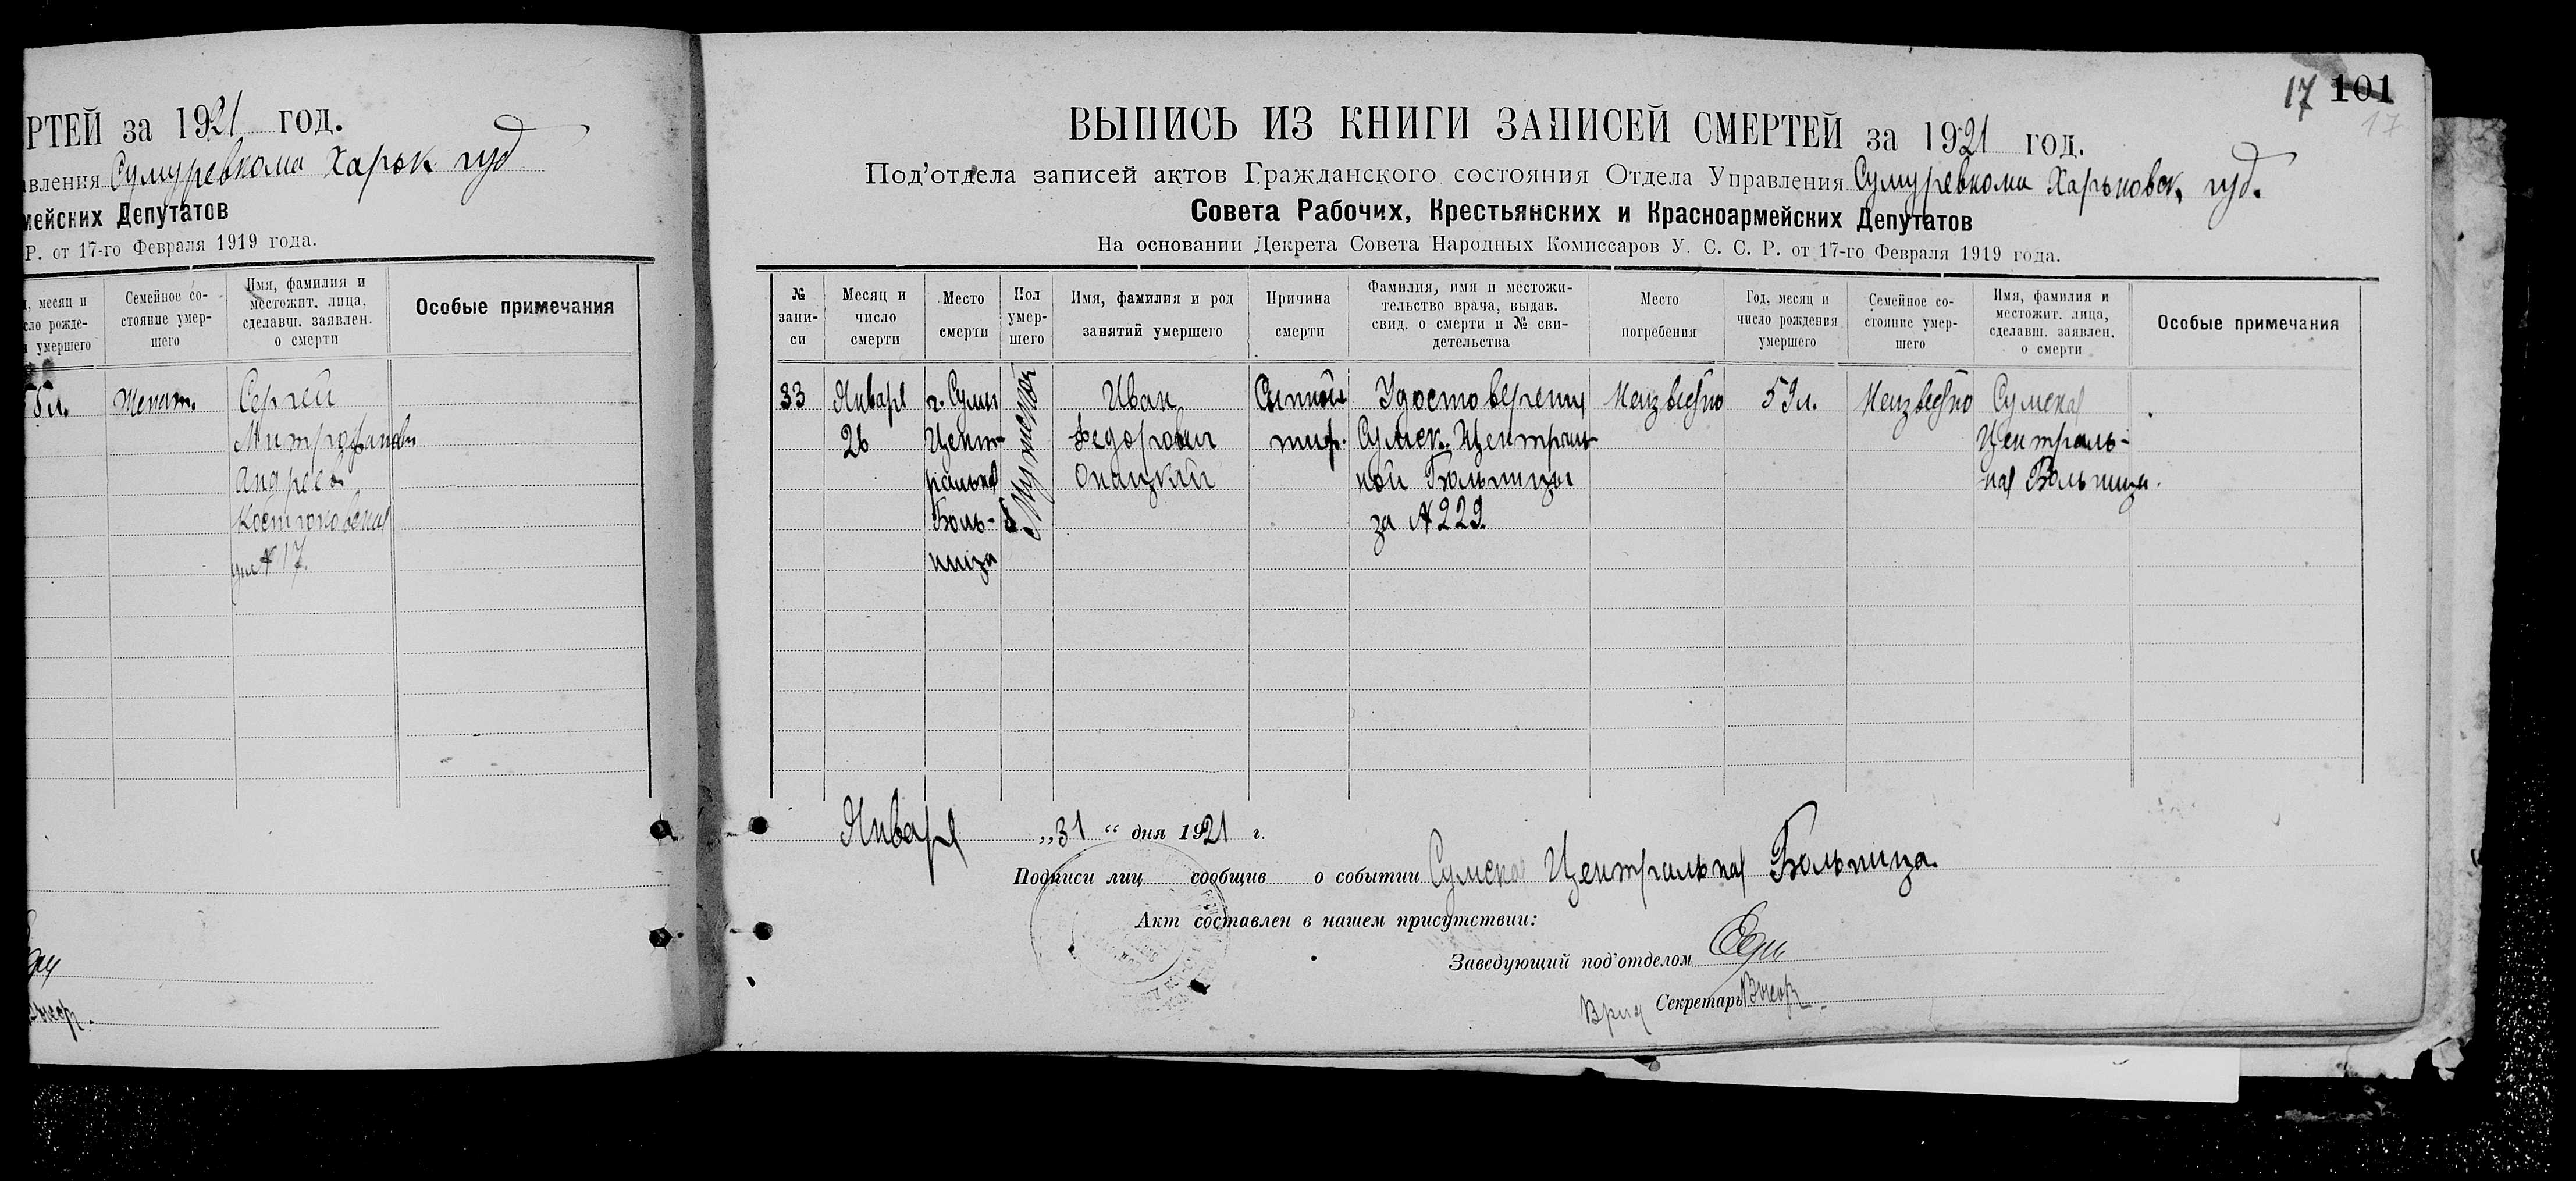 РТЕЙ за 1921 год.
авления Сумуревкома Харьк губ
мейских Депутатов
Р. от 17-го Февраля 1919 года.
, месяц и
сло рожде-
умершего
Семейное со-
стояние умер-
шего
Имя, фамилия и
местожит. лица,
сделавш. заявлен.
о смерти
Особые примечания
5л.
Женат.
Сергей
Митрофанови
Андреев
№ 17.
17 101
17
ВЫПИСЬ ИЗ КНИГИ ЗАПИСЕЙ СМЕРТЕЙ за 1921 год.
Под'отдела записей актов Гражданского состояния Отдела Управления Сумуревкома Харьковск. губ.
Совета Рабочих, Крестьянских и Красноармейских Депутатов
На основании Декрета Совета Народных Комиссаров У. С. С. Р. от 17-го Февраля 1919 года.
№
запи-
си
Месяц и
число
смерти
Место
смерти
Пол
умер-
шего
Имя, фамилия и род
занятий умершего
Причина
смерти
Фамилия, имя и местожи-
тельство врача, выдав.
свид. о смерти и № сви-
детельства
Место
погребения
Год, месяц и
число рождения
умершего
Семейное со-
стояние умер-
шего
Имя, фамилия и
местожит. лица,
сделавш. заявлен.
о смерти
Особые примечания
33
Января
26
г. Сумы
Цент-
ральная
Боль-
ница
Мужской
Иван
Федорович
Онацкий
Сыпной
тиф.
Удостоверение
Сумск. Централь-
ной Больницы
за № 229
Неизвестно
59л.
Неизвестно
Сумская
Централь-
ная Больница.
Января „31“ дня 1921 г.
Подписи лиц сообщив о событии Сумская Центральная Больница.
Акт составлен в нашем присутствии:
Заведующий под'отделом
Врид Секретарь